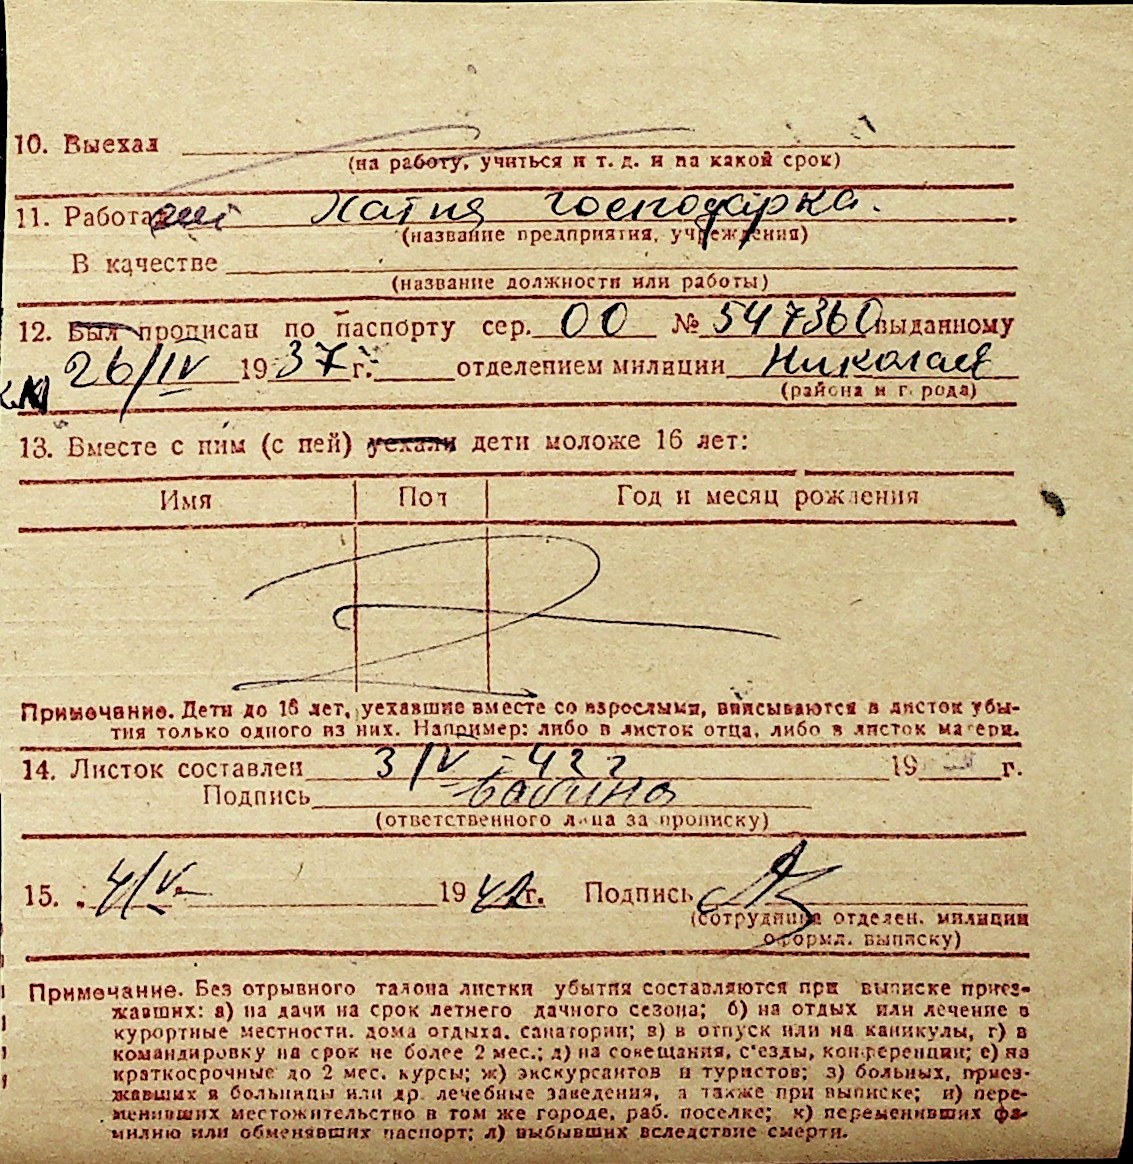 10. Выехал
(на работу, учиться и т. д. и на какой срок)
11. Работа Хатня господарка.
(название предприятия, учреждения)
В качестве
(название должности или работы)
12. Был прописан по паспорту сер. 00 № 547360 выданному
26/IV 1937 г. отделением милиции Николаев
(района и города)
13. Вместе с ним (с ней) уехали дети моложе 16 лет:
Имя Пол Год и месяц рождения
Примечание. Дети до 16 лет, уехавшие вместе со взрослыми, вписываются в листок убы-
тия только одного из них. Например: либо в листок отца, либо в листок матери.
14. Листок составлен 3/IV - 42 г 19 г.
Подпись
(ответственного лица за прописку)
15. 4/V 1942 г. Подпись
(сотрудника отделен. милиции
оформл. выписку)
Примечание. Без отрывного талона листки убытия составляются при выписке приез-
жавших: а) на дачи на срок летнего дачного сезона; б) на отдых или лечение в
курортные местности, дома отдыха, санатории; в) в отпуск или на каникулы, г) в
командировку на срок не более 2 мес.; д) на совещания, с'езды, конференции; е) на
краткосрочные до 2 мес. курсы; ж) экскурсантов и туристов; з) больных, приез-
жавших в больницы или др. лечебные заведения, а также при выписке; и) пере-
менивших местожительство в том же городе, раб. поселке; к) переменивших фа-
милию или обменявших паспорт; л) выбывших вследствие смерти.